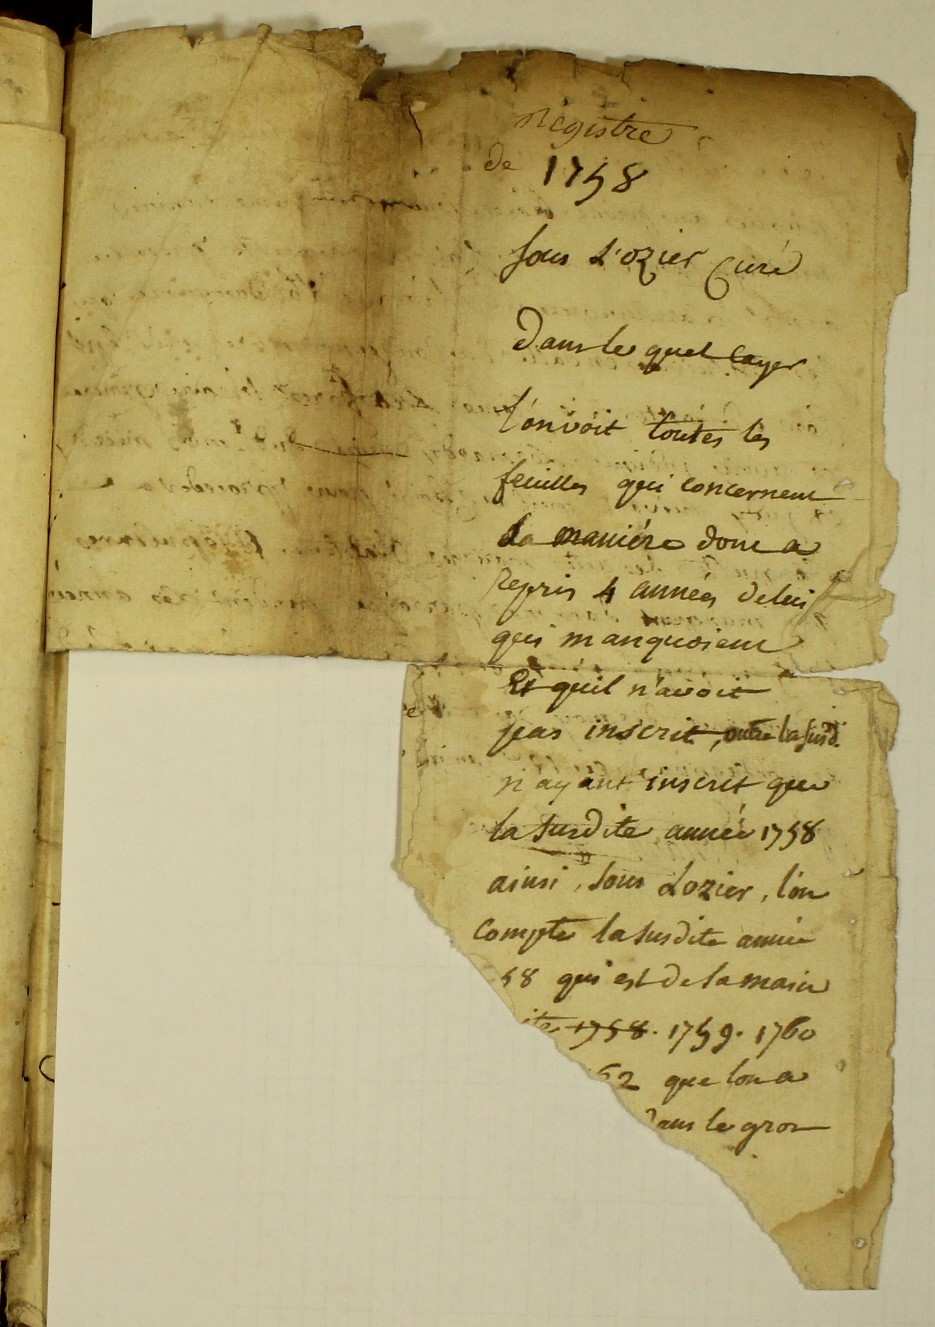 Registre
de 1758
sous L'ozier Curé
Dans le quel cayer
l'on voit toutes les
feuilles qui concernent
La maniére dont a
repris 4 années de lui
qui manquoient
Et qu'il n'avoit
pas inscrit, outre la susd.
n'ayant inscrit que
la susdite année 1758
ainsi, sous Lozier, l'on
compte la susdite année
58 qui est de la main
ite 1758. 1759. 1760
62 que l'on a
dans le gros